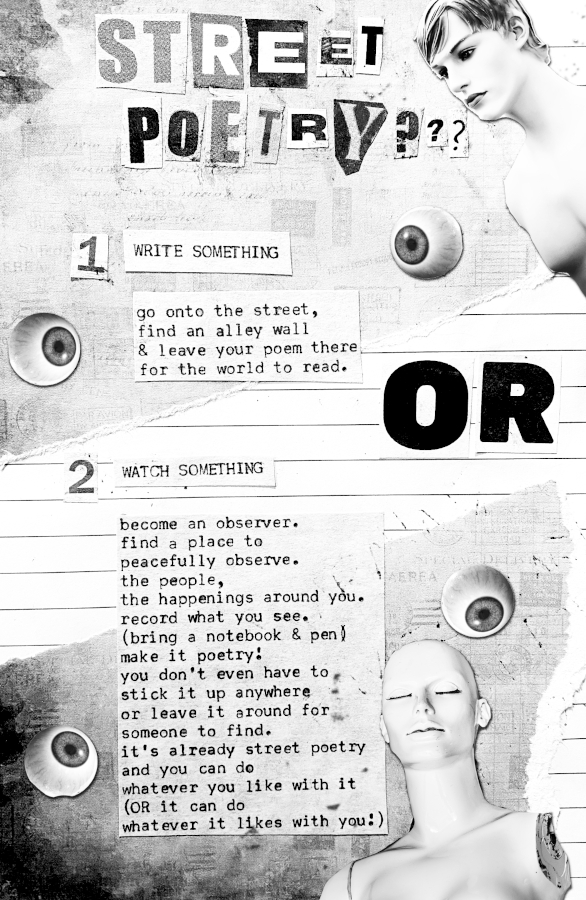 STREET
POETRY???
1 WRITE SOMETHING
go onto the street,
find an alley wall
& leave your poem there
for the world to read.
OR
2 WATCH SOMETHING
become an observer.
find a place to
peacefully observe.
the people,
the happenings around you.
record what you see.
(bring a notebook & pen)
make it poetry!
you don't even have to
stick it up anywhere
or leave it around for
someone to find.
it's already street poetry
and you can do
whatever you like with it
(OR it can do
whatever it likes with you!)